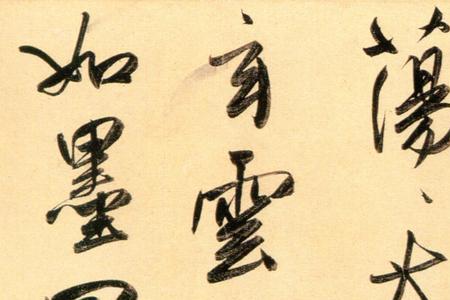 蕩、大
雲
如墨